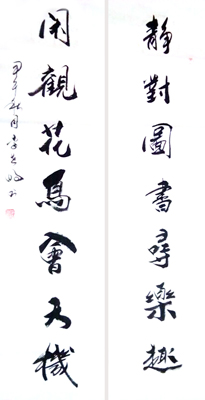 靜對圖書尋樂趣
閑觀花鳥會天機
甲午秋月李